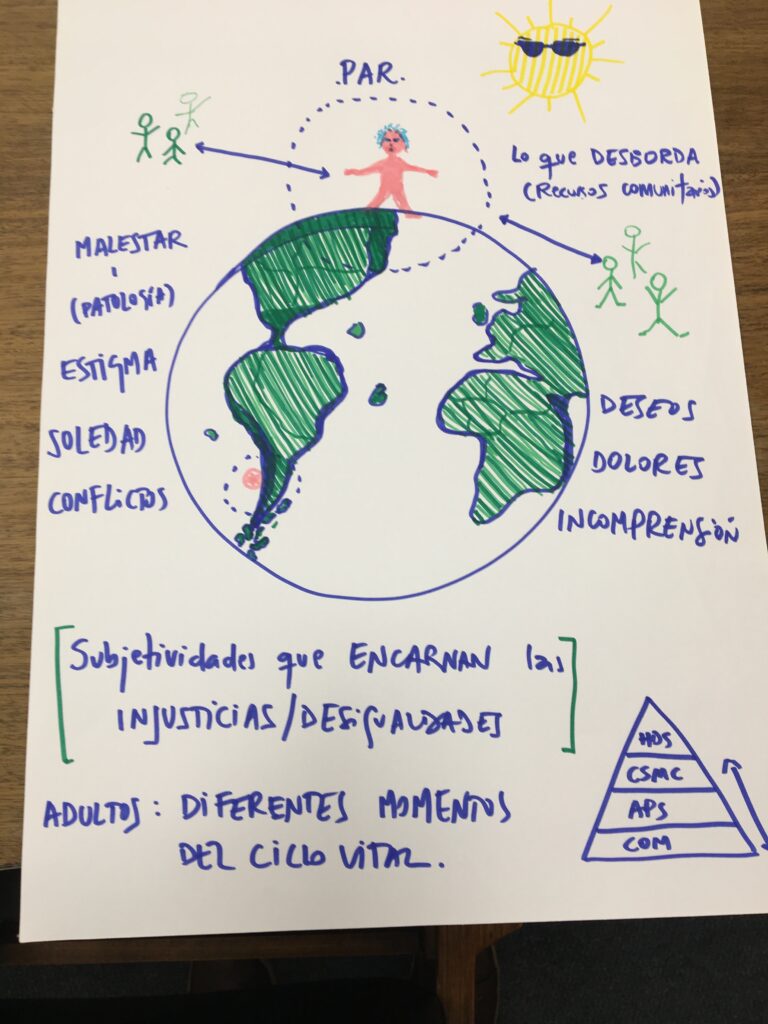 PAR.
Lo que DESBORDA
(Recursos comunitarios)
MALESTAR
(PATOLOGÍA)
ESTIGMA
SOLEDAD
CONFLICTOS
DESEOS
DOLORES
INCOMPRENSIÓN
[Subjetividades que ENCARNAN las
INJUSTICIAS/DESIGUALDADES]
ADULTOS: DIFERENTES MOMENTOS
DEL CICLO VITAL.
HDS
CSMC
APS
COM